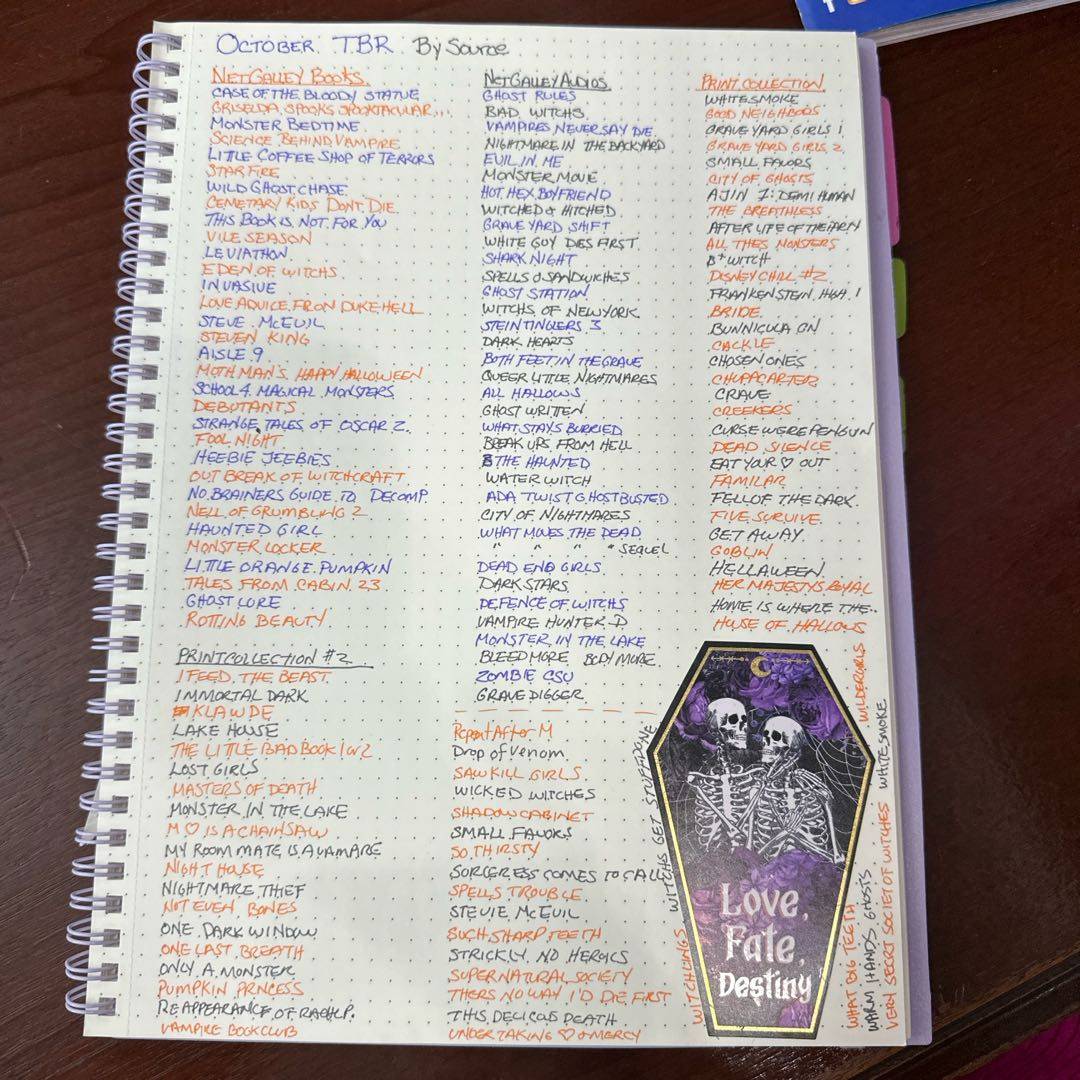 OCTOBER TBR By Source
NETGALLEY BOOKS
CASE OF THE BLOODY STATUE
GRISELDA SPOOKS SPOOKTACULAR...
MONSTER BEDTIME
SCIENCE BEHIND VAMPIRE
LITTLE COFFEE SHOP OF TERRORS
STAR FIRE
WILD GHOST CHASE
CEMETARY KIDS DON'T DIE
THIS BOOK IS NOT FOR YOU
VILE SEASON
LEVIATHON
EDEN OF WITCHS
INVASIVE
LOVE ADVICE FROM DUKE HELL
STEVE McEVIL
STEVEN KING
AISLE 9
MOTHMAN'S HAPPY HALLOWEEN
SCHOOL 4 MAGICAL MONSTERS
DEBUTANTS
STRANGE TALES OF OSCAR Z.
FOOL NIGHT
HEEBIE JEEBIES
OUT BREAK OF WITCHCRAFT
NO BRAINERS GUIDE TO DECOMP
NELL OF GRUMBLING 2
HAUNTED GIRL
MONSTER LOCKER
LITTLE ORANGE PUMPKIN
TALES FROM CABIN 23
GHOST LORE
ROTTING BEAUTY
NETGALLEY AUDIOS
GHOST RULES
BAD WITCHS
VAMPIRES NEVER SAY DIE
NIGHTMARE IN THE BACKYARD
EVIL IN ME
MONSTER MOVE
HOT HEX BOYFRIEND
WITCHED & HITCHED
GRAVE YARD SHIFT
WHITE GUY DIES FIRST
SHARK NIGHT
SPELLS & SANDWICHES
GHOST STATION
WITCHS OF NEW YORK
STEINTINGLERS 3
DARK HEARTS
BOTH FEET IN THE GRAVE
QUEER LITTLE NIGHTMARES
ALL HALLOWS
GHOST WRITTEN
WHAT STAYS BURRIED
BREAK UPS FROM HELL
THE HAUNTED
WATER WITCH
ADA TWIST GHOSTBUSTED
CITY OF NIGHTMARES
WHAT MOVES THE DEAD
" " " " SEQUEL
DEAD END GIRLS
DARK STARS
DEFENCE OF WITCHS
VAMPIRE HUNTER D
MONSTER IN THE LAKE
BLEED MORE BODY MORE
ZOMBIE CSU
GRAVE DIGGER
PRINT COLLECTION
WHITE SMOKE
GOOD NEIGHBORS
GRAVE YARD GIRLS 1
GRAVE YARD GIRLS 2
SMALL FAVORS
CITY OF GHOSTS
AJIN 1: DEMI HUMAN
THE BREATHLESS
AFTER LIFE OF THE PARTY
ALL THES MONSTERS
B*WITCH
DISNEY CHILL #2
FRANKENSTEIN HGH. 1
BRIDE
BUNNICULA GN
CACKLE
CHOSEN ONES
CHUPACARTER
CRAVE
CREEKERS
CURSE WERE PENGUIN
DEAD SILENCE
EAT YOUR ♡ OUT
FAMILAR
FELL OF THE DARK
FIVE SURVIVE
GET AWAY
GOBLIN
HELLAWEEN
HER MAJESTYS ROYAL
HOME IS WHERE THE..
HOUSE OF HALLOWS
PRINT COLLECTION #2
I FEED THE BEAST
IMMORTAL DARK
KLAWDE
LAKE HOUSE
THE LITTLE BAD BOOK 1 or 2
LOST GIRLS
MASTERS OF DEATH
MONSTER IN THE LAKE
M ♡ IS A CHAINSAW
MY ROOM MATE IS A VAMPIRE
NIGHT HOUSE
NIGHTMARE THIEF
NOT EVEN BONES
ONE DARK WINDOW
ONE LAST BREATH
ONLY A MONSTER
PUMPKIN PRNCESS
REAPPEARANCE OF RACH P.
VAMPIRE BOOKCLUB
Repeat After M
Drop of Venom
SAWKILL GIRLS
WICKED WITCHES
SHADOW CABINET
SMALL FAVORS
SO THIRSTY
SORCERESS COMES TO CALL
SPELLS TROUBLE
STEVIE McEVIL
SUCH SHARP TEETH
STRICKLY NO HEROICS
SUPERNATURAL SOCIETY
THERS NO WAY I'D DIE FIRST
THIS DELICIOUS DEATH
UNDERTAKING ♡ & MERCY
WITCHLINGS
WITCHS GET STUFF DONE
WHAT BIG TEETH
WARM HANDS GHOSTS
VERY SECRT SOCIETY OF WITCHES
WHITE SMOKE
WILDER GIRLS
Love,
Fate,
Destiny